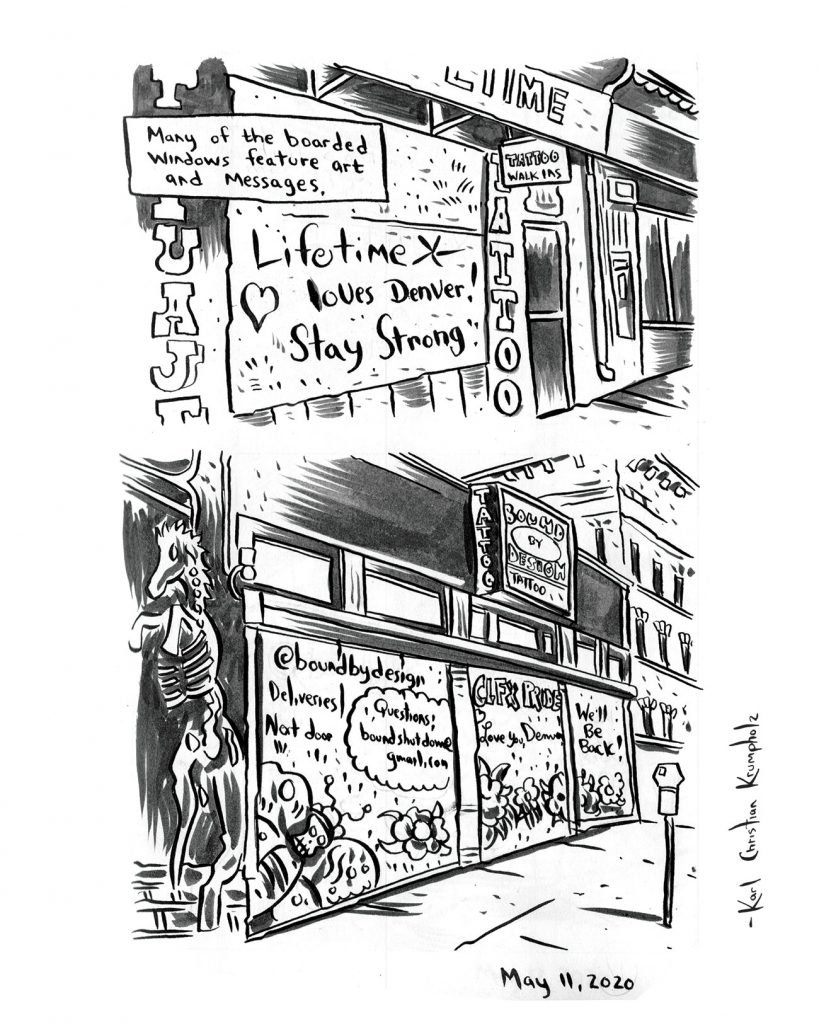 Many of the boarded
windows feature art
and messages.
ETIME
TATTOO
WALK INS
TATTOO
Lifetime X
loves Denver!
Stay Strong
TATTOO
BOUND
BY
DESIGN
TATTOO
@boundbydesign
Deliveries!
Next door
Questions:
boundshutdown@
gmail.com
PRIDE
Love you, Denver
We'll
Be
Back!
-Karl Christian Krumpholz
May 11, 2020